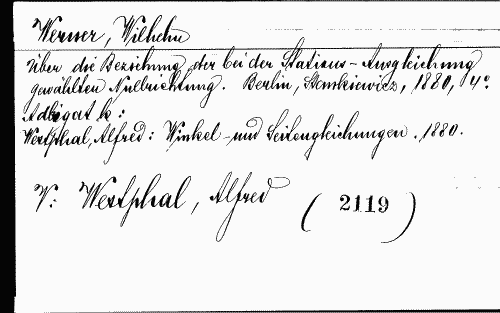 Werner, Wilhelm
Über die Beziehung der bei der Stations-Ausgleichung
gewählten Nullrichtung. Berlin, Stankiewicz, 1880, 4°.
Adligat k:
Westphal, Alfred: Winkel- und Seitengleichungen. 1880.
V: Westphal, Alfred (2119)